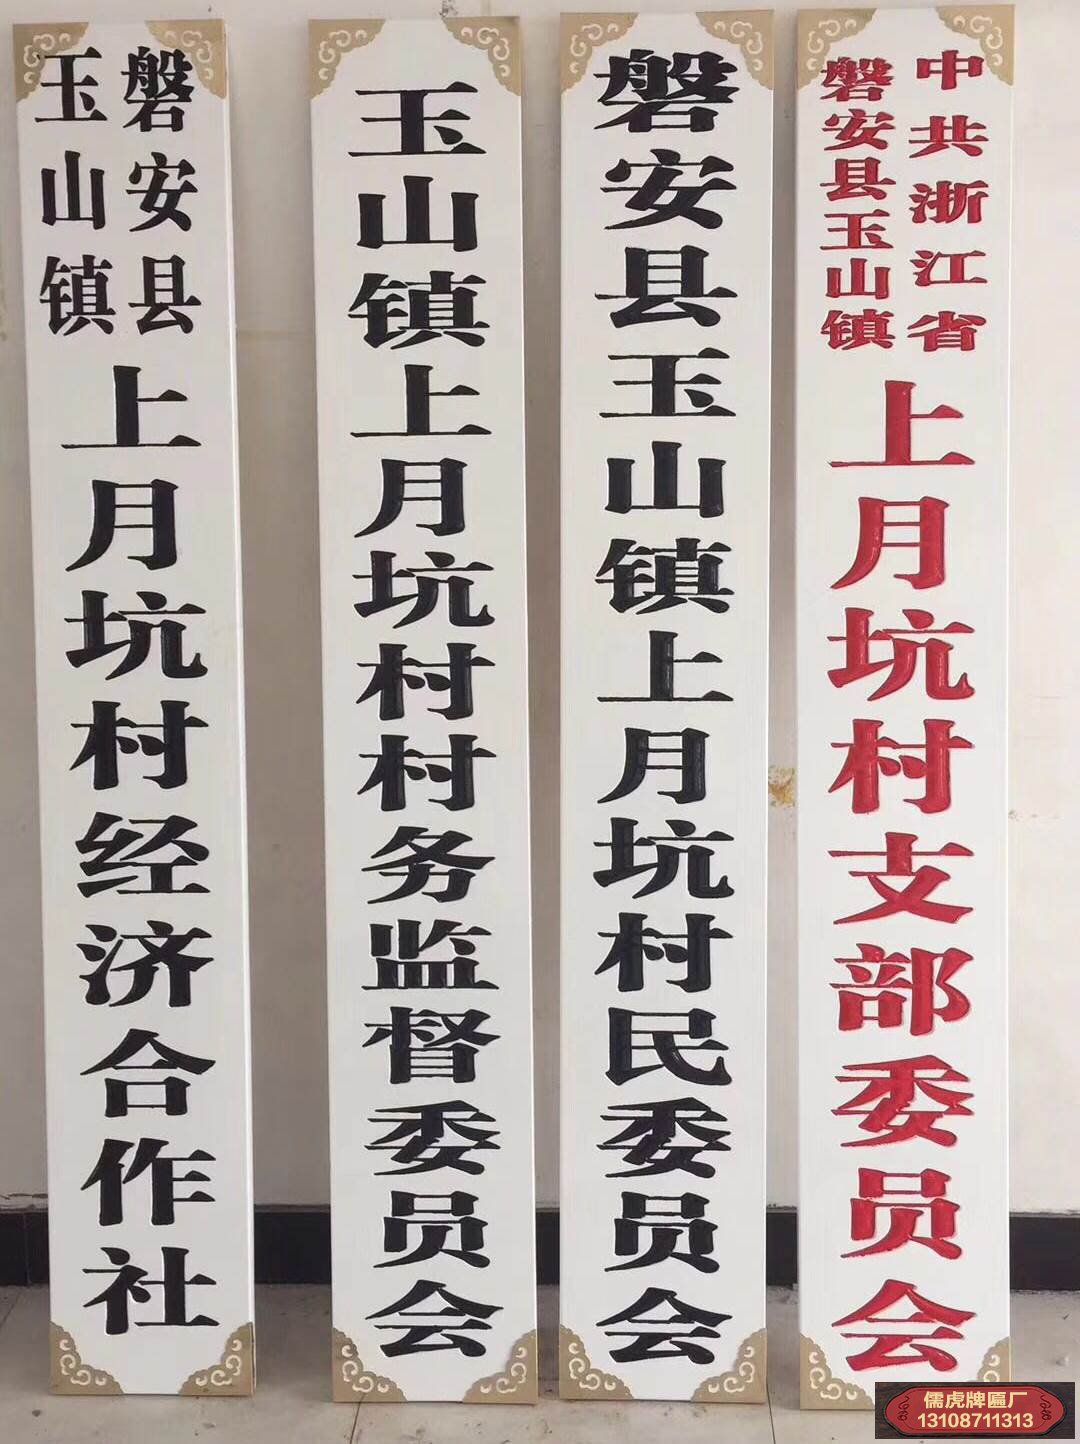 中共浙江省
磐安县玉山镇
上月坑村支部委员会
磐安县玉山镇上月坑村民委员会
玉山镇上月坑村村务监督委员会
磐安县
玉山镇
上月坑村经济合作社
儒虎牌匾厂
13108711313